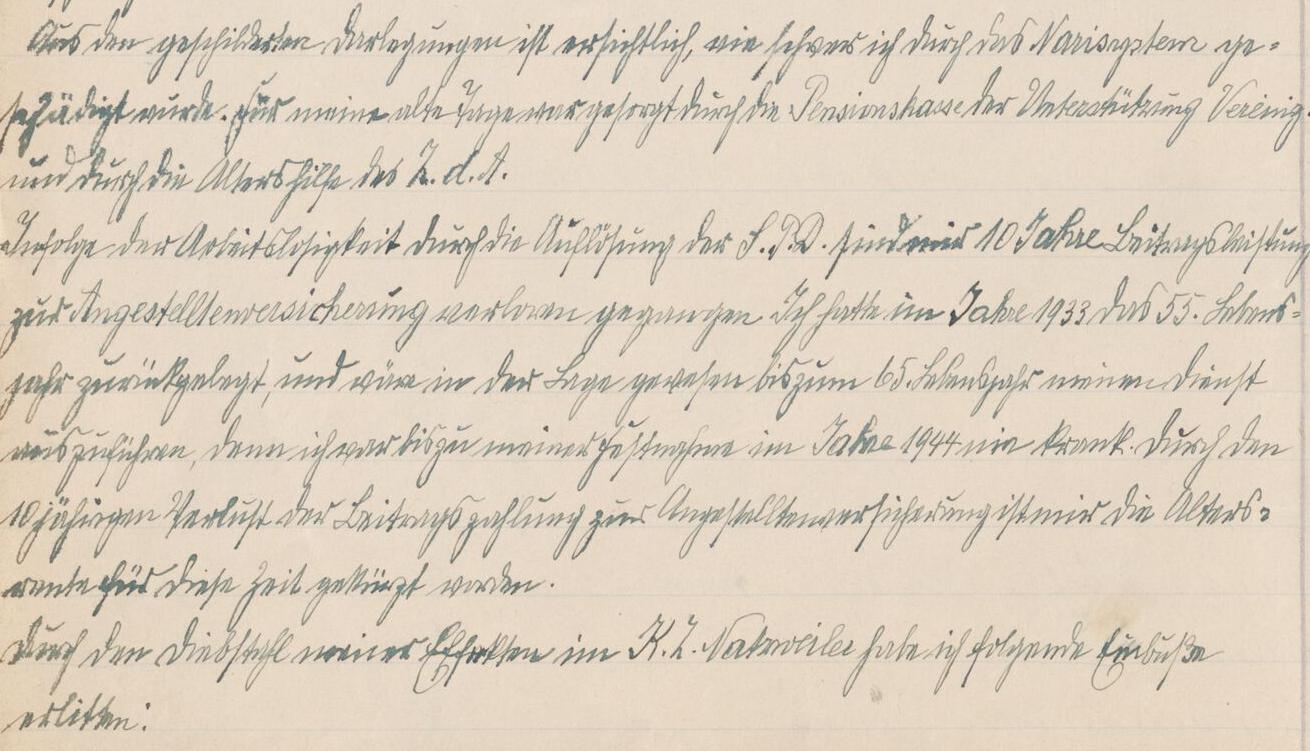 Aus den geschilderten Darlegungen ist ersichtlich, wie schwer ich durch das Narisystem ge-
schädigt wurde. Für meine alte Tage war gesorgt durch die Pensionskasse der Unterstützung Vereinig.
und durch die Altershilfe des Z.d.A.
Infolge der Arbeitslosigkeit durch die Auflösung der S.P.D. sind mir 10 Jahre Beitragsleistung
zur Angestelltenversicherung verloren gegangen. Ich hatte im Jahre 1933 das 55. Lebens-
jahr zurückgelegt, und wäre in der Lage gewesen bis zum 65. Lebensjahr meinen Dienst
auszuführen, denn ich war bis zu meiner Festnahme im Jahre 1944 nie krank. Durch den
10 jährigen Verlust der Beitragszahlung zur Angestelltenversicherung ist mir die Alters-
rente für diese Zeit gekürzt worden.
Durch den Diebstahl meiner Effekten im K.Z. Natzweiler habe ich folgende Einbuße
erlitten: